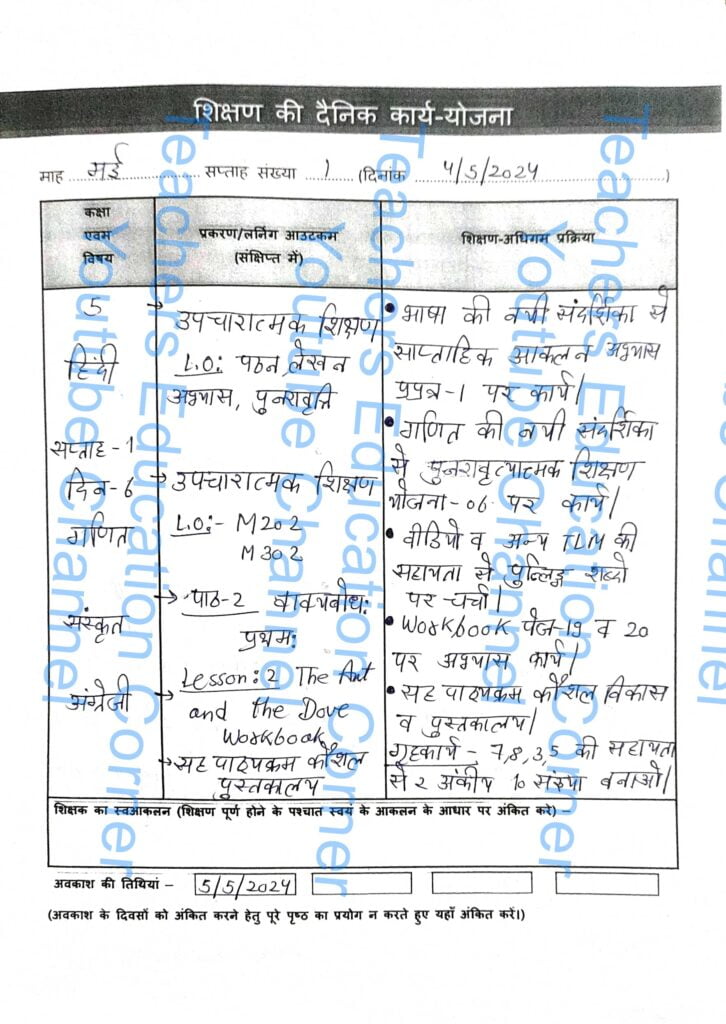 शिक्षण की दैनिक कार्य-योजना
माह मई सप्ताह संख्या 1 (दिनांक 4/5/2024 )
कक्षा
एवम
विषय
प्रकरण/लर्निंग आउटकम
(संक्षिप्त में)
शिक्षण-अधिगम प्रक्रिया
5
हिंदी
सप्ताह - 1
दिन - 6
गणित
संस्कृत
अंग्रेजी
→ उपचारात्मक शिक्षण
L.O: पठन, लेखन
अभ्यास, पुनरावृत्ति
→ उपचारात्मक शिक्षण
L.O:- M202
M302
→ पाठ-2 वाक्यबोधः
प्रथमः
→ Lesson: 2 The Ant
and the Dove
Workbook
→ सह पाठ्यक्रम कौशल
पुस्तकालय
• भाषा की नयी संदर्शिका से
साप्ताहिक आकलन अभ्यास
प्रपत्र-1 पर कार्य।
• गणित की नयी संदर्शिका
से पुनरावृत्यात्मक शिक्षण
योजना - 06 पर कार्य।
• वीडियो व अन्य TLM की
सहायता से पुल्लिङ्ग शब्दो
पर चर्चा।
• Workbook पेज-19 व 20
पर अभ्यास कार्य।
• सह पाठ्यक्रम कौशल विकास
व पुस्तकालय।
गृहकार्य - 7,8,3,5 की सहायता
से 2 अंकीय 10 संख्या बनाओ।
शिक्षक का स्वआकलन (शिक्षण पूर्ण होने के पश्चात स्वयं के आकलन के आधार पर अंकित करे) –
अवकाश की तिथियां – 5/5/2024
(अवकाश के दिवसों को अंकित करने हेतु पूरे पृष्ठ का प्रयोग न करते हुए यहाँ अंकित करें।)
Teachers Education Corner
Youtube Channel
Teachers Education Corner
Youtube Channel